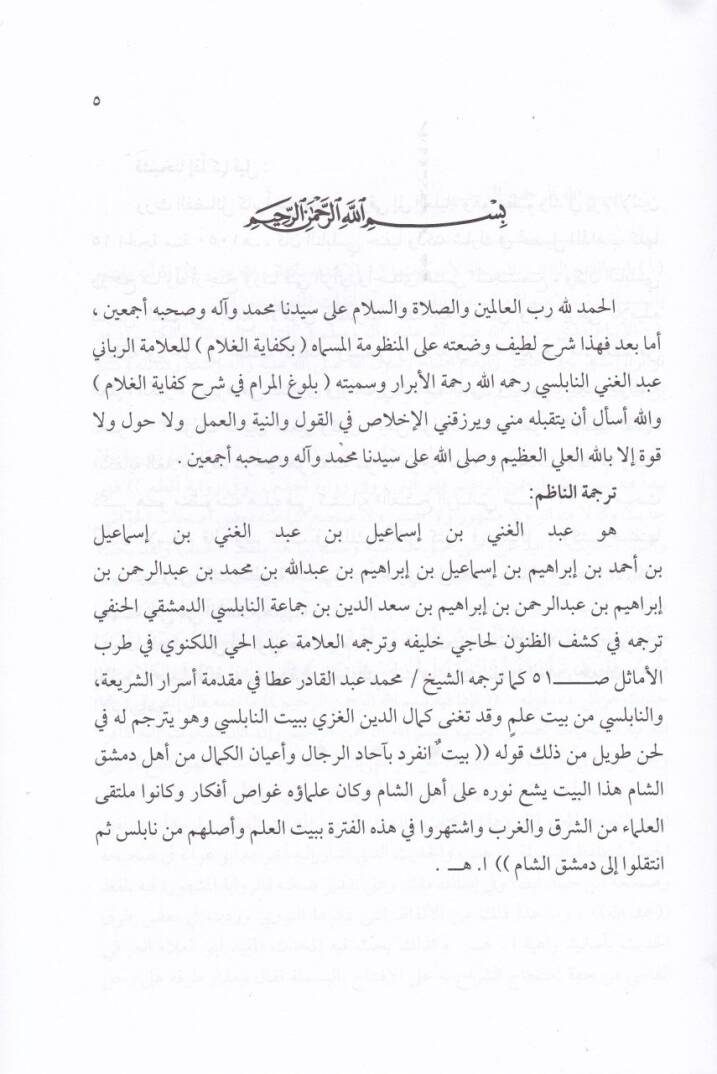 ٥
بِسْمِ اللَّهِ الرَّحْمَنِ الرَّحِيمِ
الحمد لله رب العالمين والصلاة والسلام على سيدنا محمد وآله وصحبه أجمعين ،
أما بعد فهذا شرح لطيف وضعته على المنظومة المسماه ( بكفاية الغلام ) للعلامة الرباني
عبد الغني النابلسي رحمه الله رحمة الأبرار وسميته ( بلوغ المرام في شرح كفاية الغلام )
والله أسأل أن يتقبله مني ويرزقني الإخلاص في القول والنية والعمل ولا حول ولا
قوة إلا بالله العلي العظيم وصلى الله على سيدنا محمد وآله وصحبه أجمعين .
ترجمة الناظم:
هو عبد الغني بن إسماعيل بن عبد الغني بن إسماعيل
بن أحمد بن إبراهيم بن إسماعيل بن إبراهيم بن عبدالله بن محمد بن عبدالرحمن بن
إبراهيم بن عبدالرحمن بن إبراهيم بن سعد الدين بن جماعة النابلسي الدمشقي الحنفي
ترجمه في كشف الظنون لحاجي خليفه وترجمه العلامة عبد الحي اللكنوي في طرب
الأماثل صـــ ٥١ كما ترجمه الشيخ / محمد عبد القادر عطا في مقدمة أسرار الشريعة،
والنابلسي من بيت علمٍ وقد تغنى كمال الدين الغزي ببيت النابلسي وهو يترجم له في
لحن طويل من ذلك قوله (( بيتٌ انفرد بآحاد الرجال وأعيان الكمال من أهل دمشق
الشام هذا البيت يشع نوره على أهل الشام وكان علماؤه غواص أفكار وكانوا ملتقى
العلماء من الشرق والغرب واشتهروا في هذه الفترة ببيت العلم وأصلهم من نابلس ثم
انتقلوا إلى دمشق الشام )) ا. هـ .